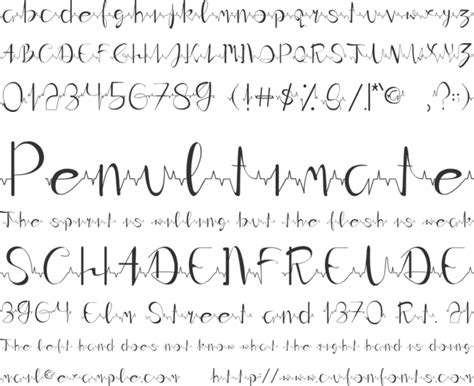 abcdefghijklmnopqrstuvwxyz
ABCDEFGHIJKLMNOPQRSTUVWXYZ
0123456789 (!#$%&/.|*"@ ,?:)
Penultimate
The spirit is willing but the flesh is weak
SCHADENFREUDE
3964 Elm Street and 1370 Rt. 21
The left hand does not know what the right hand is doing